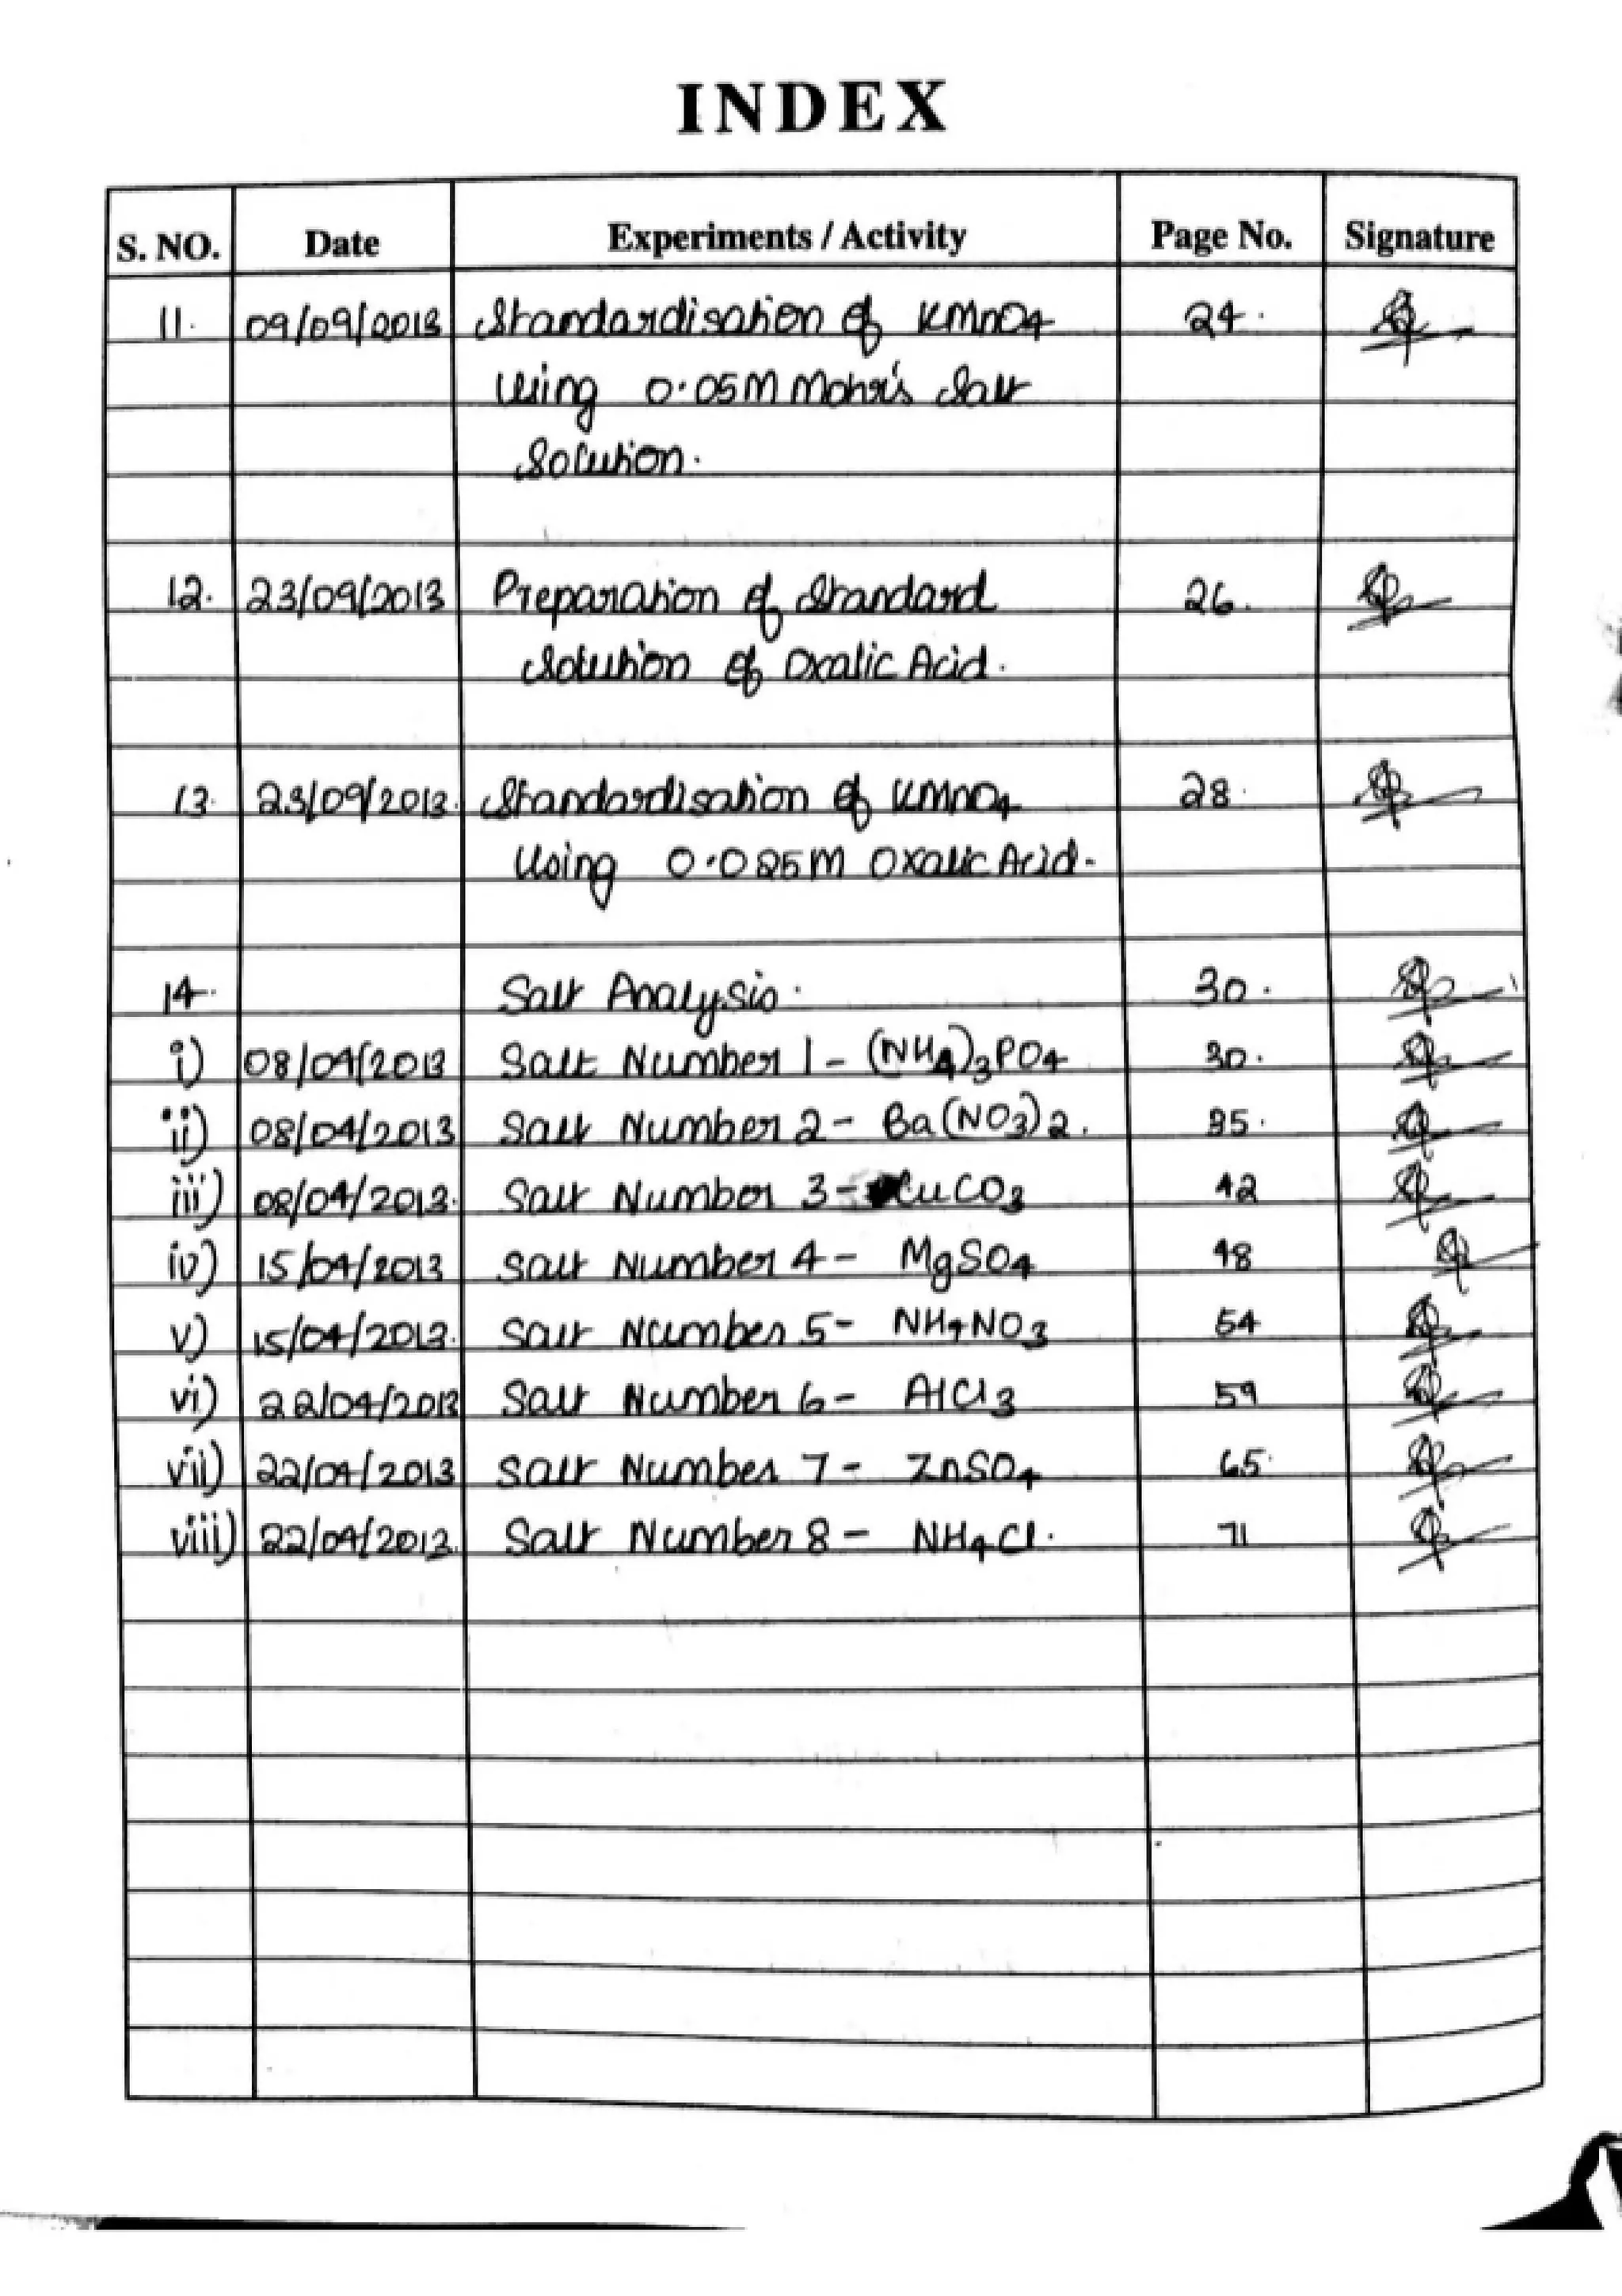 INDEX
S. NO. Date Experiments / Activity Page No. Signature
11. 09/09/2013 Standardisation of KMnO4 24.
Using 0.05M Mohr's Salt
Solution.
12. 23/09/2013 Preparation of Standard 26.
Solution of Oxalic Acid.
13. 23/09/2013. Standardisation of KMnO4 28.
Using 0.025M Oxalic Acid.
14. Salt Analysis. 30.
i) 08/04/2013 Salt Number 1 - (NH4)3PO4 30.
ii) 08/04/2013 Salt Number 2 - Ba(NO3)2. 35.
iii) 08/04/2013. Salt Number 3 - CuCO3 42
iv) 15/04/2013 Salt Number 4 - MgSO4 48
v) 15/04/2013. Salt Number 5 - NH4NO3 54
vi) 22/04/2013 Salt Number 6 - AlCl3 59
vii) 22/04/2013 Salt Number 7 - ZnSO4 65.
viii) 22/04/2013. Salt Number 8 - NH4Cl. 71